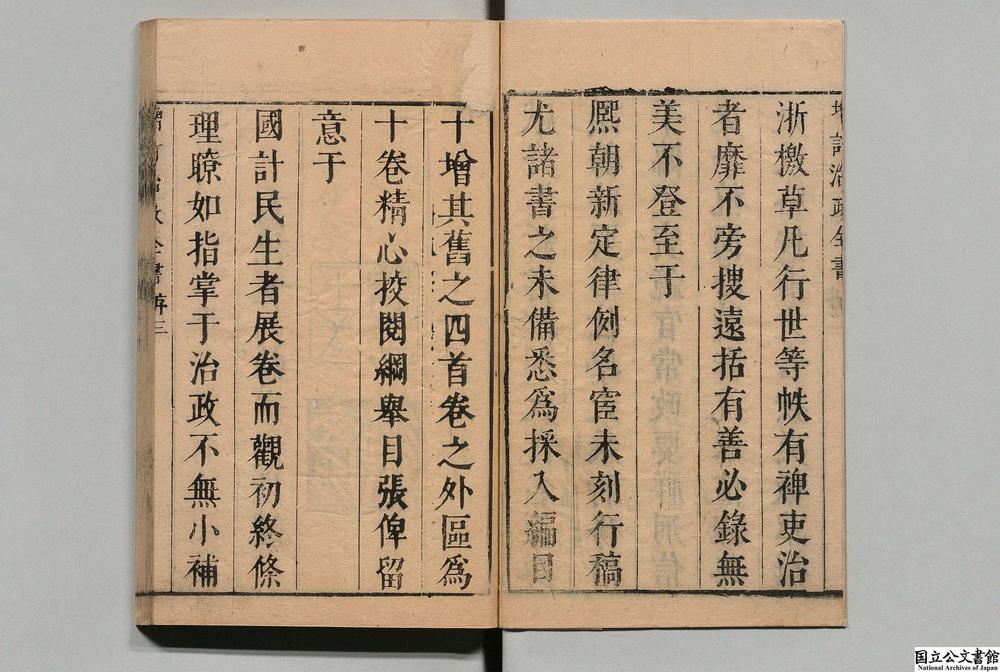 增訂治政全書
浙檄草凡行世等帙有裨吏治
者靡不旁搜遠括有善必錄無
美不登至于
熙朝新定律例名宦未刻行稿
尤諸書之未備悉爲採入編目
十增其舊之四首卷之外區爲
十卷精心挍閱綱舉目張俾留
意于
國計民生者展卷而觀初終條
理瞭如指掌于治政不無小補
增訂治政全書 序三
国立公文書館
National Archives of Japan